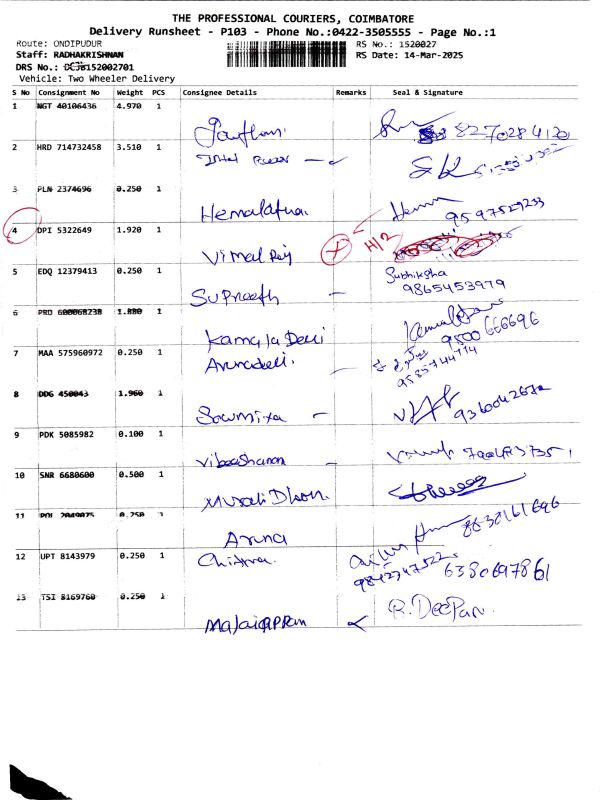 THE PROFESSIONAL COURIERS, COIMBATORE
Delivery Runsheet - P103 - Phone No.:0422-3505555 - Page No.:1
Route: ONDIPUDUR RS No.: 1520027
Staff: RADHAKRISHNAN RS Date: 14-Mar-2025
DRS No.: 152002701
Vehicle: Two Wheeler Delivery
S No Consignment No Weight PCS Consignee Details Remarks Seal & Signature
1 NGT 40106436 4.970 1
Gautham 8270284120
2 HRD 714732458 3.510 1
3 PLN 2374696 0.250 1
Hemalatha 9597529233
4 DPI 5322649 1.920 1 H/2
Vimal Raj
5 EDQ 12379413 0.250 1 Subhiksha
Supreeth - 9865453979
6 PRD 600068238 1.880 1
Kamala Devi 9500666696
7 MAA 575960972 0.250 1
Arunadevi. 9585744774
8 DDG 450043 1.960 1
Sowmiya -
9 PDK 5085982 0.100 1
10 SNR 6680600 0.500 1
Murali Dharan
11 POL 2049075 0.250 1
Aruna 8838161696
12 UPT 8143979 0.250 1
Chitra 6380697861
13 TSI 8169760 0.250 1
Malaiappan R. Deepan